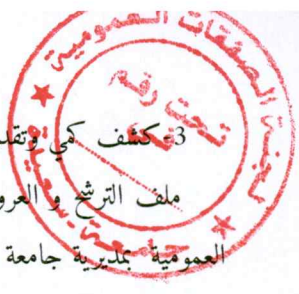 لجنة الصفقات العمومية
تحت رقم
3- كشف كمي وتقد
ملف الترشح و العرو
العمومية بمديرية جامعة